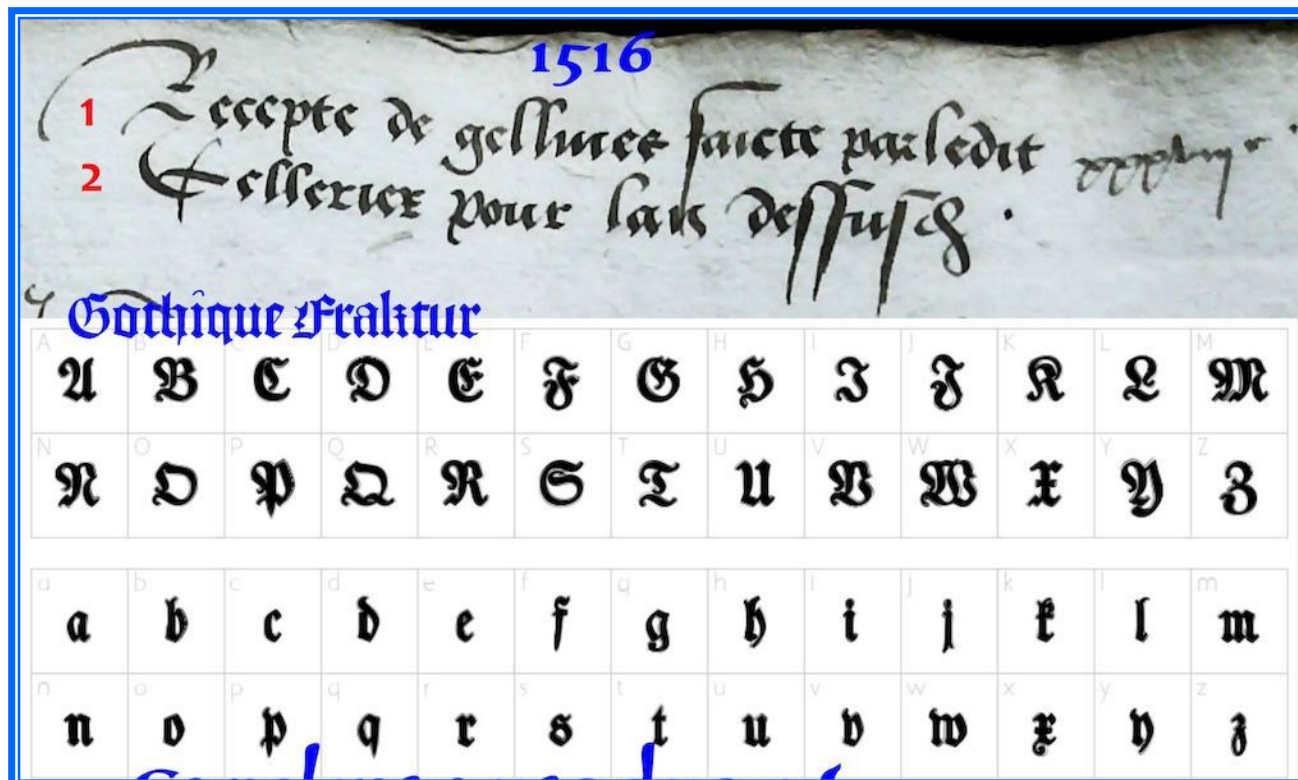 1516
1 Recepte de gellines faicte par ledit xxxviij
2 Cellerier pour lan dessusd
Gothique Fraktur
A B C D E F G H I J K L M
A B C D E F G H I J K L M
N O P Q R S T U V W X Y Z
N O P Q R S T U V W X Y Z
a b c d e f g h i j k l m
a b c d e f g h i j k l m
n o p q r s t u v w x y z
n o p q r s t u v w x y z